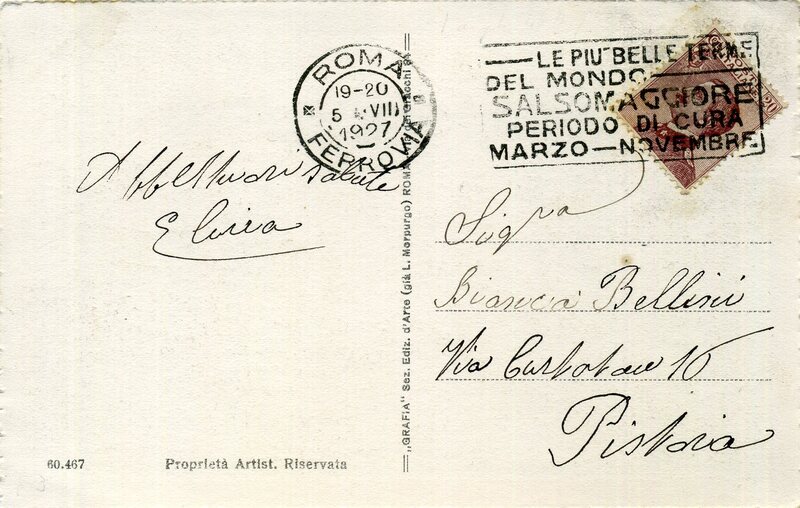 ROMA
19-20
5 VIII
1927
FERROVIA
LE PIU' BELLE TERME
DEL MONDO
SALSOMAGGIORE
PERIODO DI CURA
MARZO — NOVEMBRE
20
Affettuosi salute
Elvira
„GRAFIA" Sez. Ediz. d'Arte (già L. Morpurgo) ROMA
Sigra
Bianca Bellini
Via 16
Pistoia
60.467
Proprietà Artist. Riservata